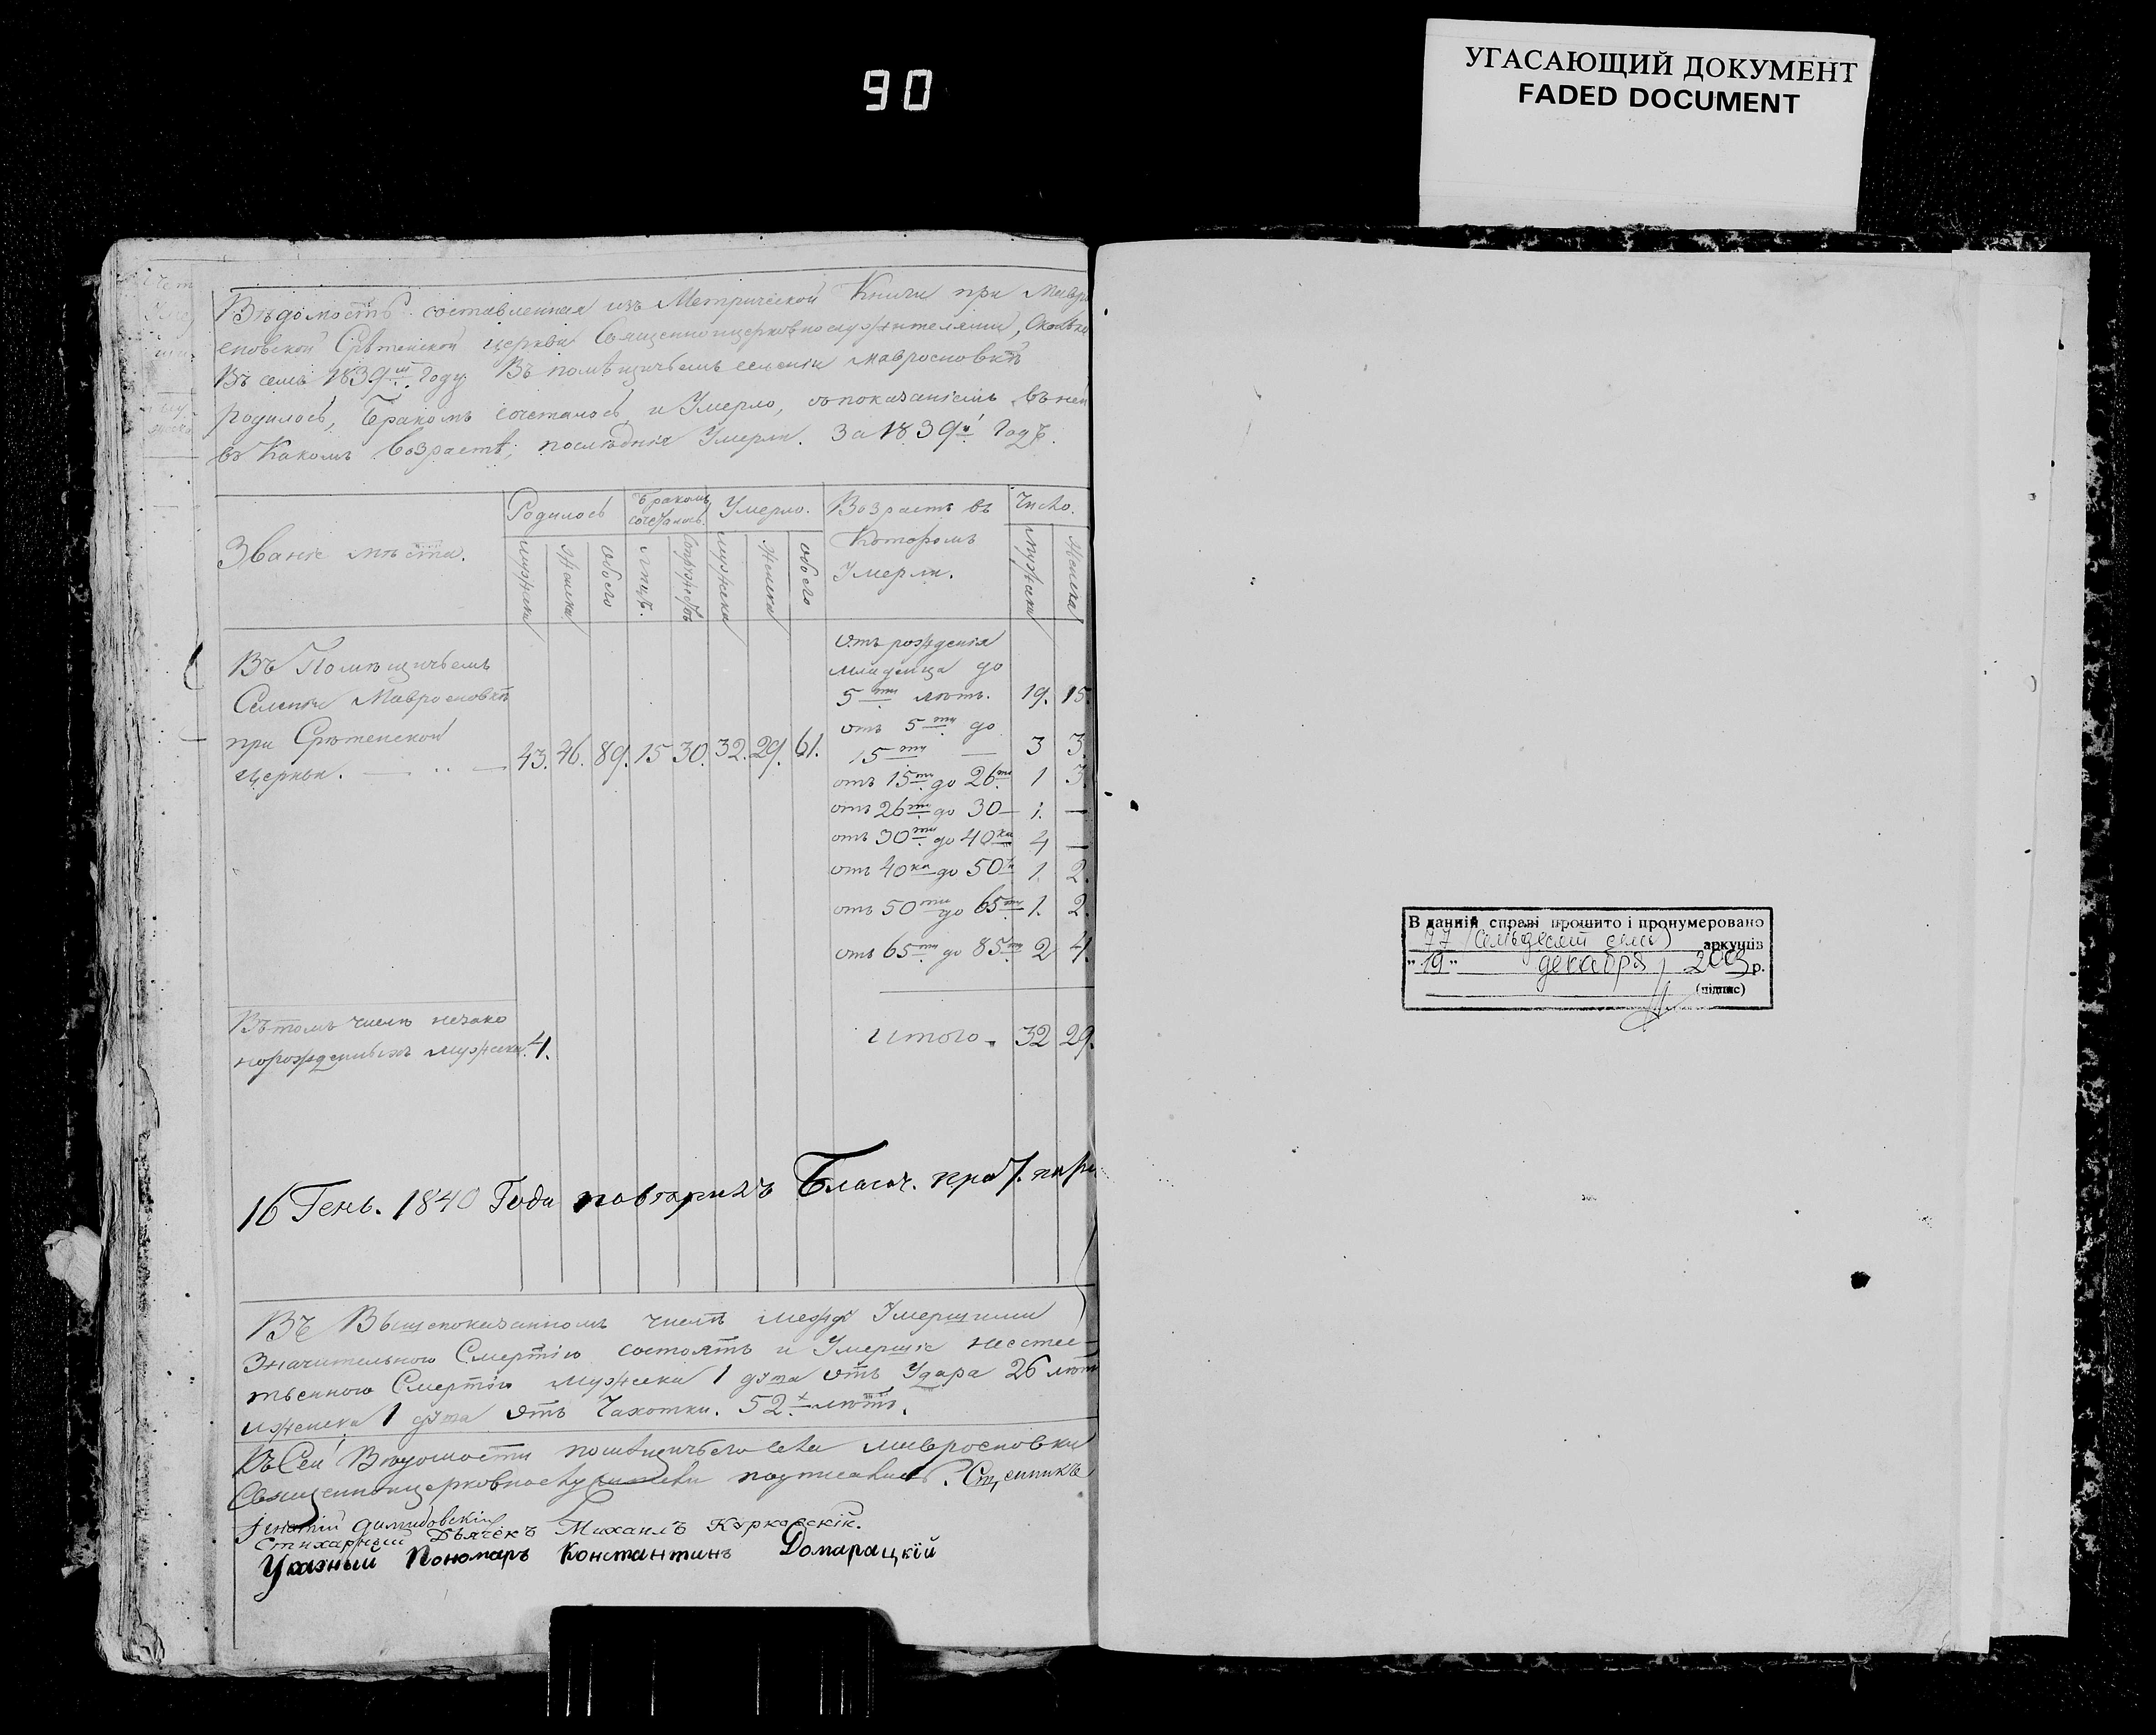 90
УГАСАЮЩИЙ ДОКУМЕНТ
FADED DOCUMENT
Вѣдомость составленная изъ Метрической Книги при Мавро
еновской Срѣтенской церкви Священноцерковнослужителями, Сколько
Въ семъ 1839мъ Году Въ помѣщичьемъ селеніи Мавроеновкѣ
родилось, Бракомъ сочеталось, и Умерло, съ показаніемъ въ ней
въ Какомъ Возрастѣ, послѣднія Умерли. За 1839й Годъ.
Званіе мѣста.
Родилось
Бракомъ сочеталось.
Умерло.
Возрастъ въ Которомъ Умерли.
Число.
мужеска
Женска
обоего
лицъ.
мужеска
Женска
обоего
мужеска
Женска
Въ Помѣщичьемъ
Селеніи Мавроеновкѣ
при Срѣтенской
церкви.
43. 46. 89. 15 30. 32. 29. 61.
отъ рожденія
младенца до
5ти лѣтъ. 19. 15.
отъ 5ти до
15ти — 3 3.
отъ 15ти до 26ти 1 3
отъ 26ти до 30 — 1. —
отъ 30ти до 40ка 4 —
отъ 40ка до 50ти 1. 2.
отъ 50ти до 65ти 1. 2.
отъ 65ти до 85ти 2 4.
Итого. 32 29.
Въ томъ числѣ незако
норожденныхъ мужеска. 4.
16 Генв. 1840 Года Благоч.
Въ Вышепоказанномъ числѣ между Умершими
Значительною Смертію состоятъ и Умершіе неестес
твенною Смертію мужеска 1 душа отъ Удара 26 лѣтъ
и женска 1 душа отъ Чахотки. 52х лѣтъ.
Къ Сей Вѣдомости помѣщичьего села Мавроеновки
Священноцерковнослужители подписались.
Стихарный Дьячекъ Михаилъ Курковскій.
Указный Пономарь Константинъ Домарацкій
В данній справі прошито і пронумеровано
77 (семьдесят семь) аркушів
"19" декабря 2003 р.
(підпис)